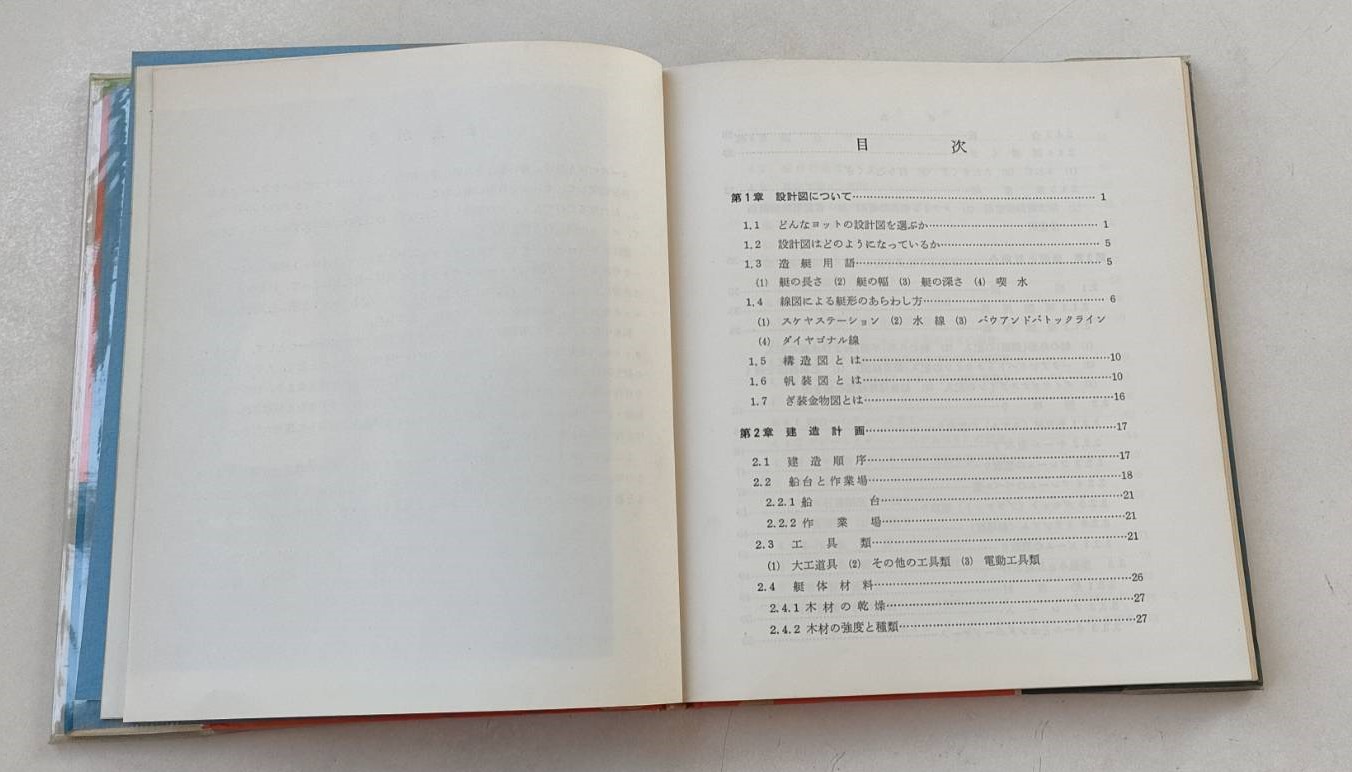 目 次
第1章 設計図について…………………………………………… 1
1.1 どんなヨットの設計図を選ぶか…………………………… 1
1.2 設計図はどのようになっているか………………………… 5
1.3 造艇用語…………………………………………… 5
(1) 艇の長さ (2) 艇の幅 (3) 艇の深さ (4) 喫水
1.4 線図による艇形のあらわし方……………………………… 6
(1) スケヤステーション (2) 水線 (3) バウアンドバトックライン
(4) ダイヤゴナル線
1.5 構造図とは……………………………………………10
1.6 帆装図とは……………………………………………10
1.7 ぎ装金物図とは……………………………………………16
第2章 建造計画……………………………………………17
2.1 建造順序……………………………………………17
2.2 船台と作業場……………………………………………18
2.2.1 船台……………………………………………21
2.2.2 作業場……………………………………………21
2.3 工具類……………………………………………21
(1) 大工道具 (2) その他の工具類 (3) 電動工具類
2.4 艇体材料……………………………………………26
2.4.1 木材の乾燥……………………………………………27
2.4.2 木材の強度と種類……………………………………………27